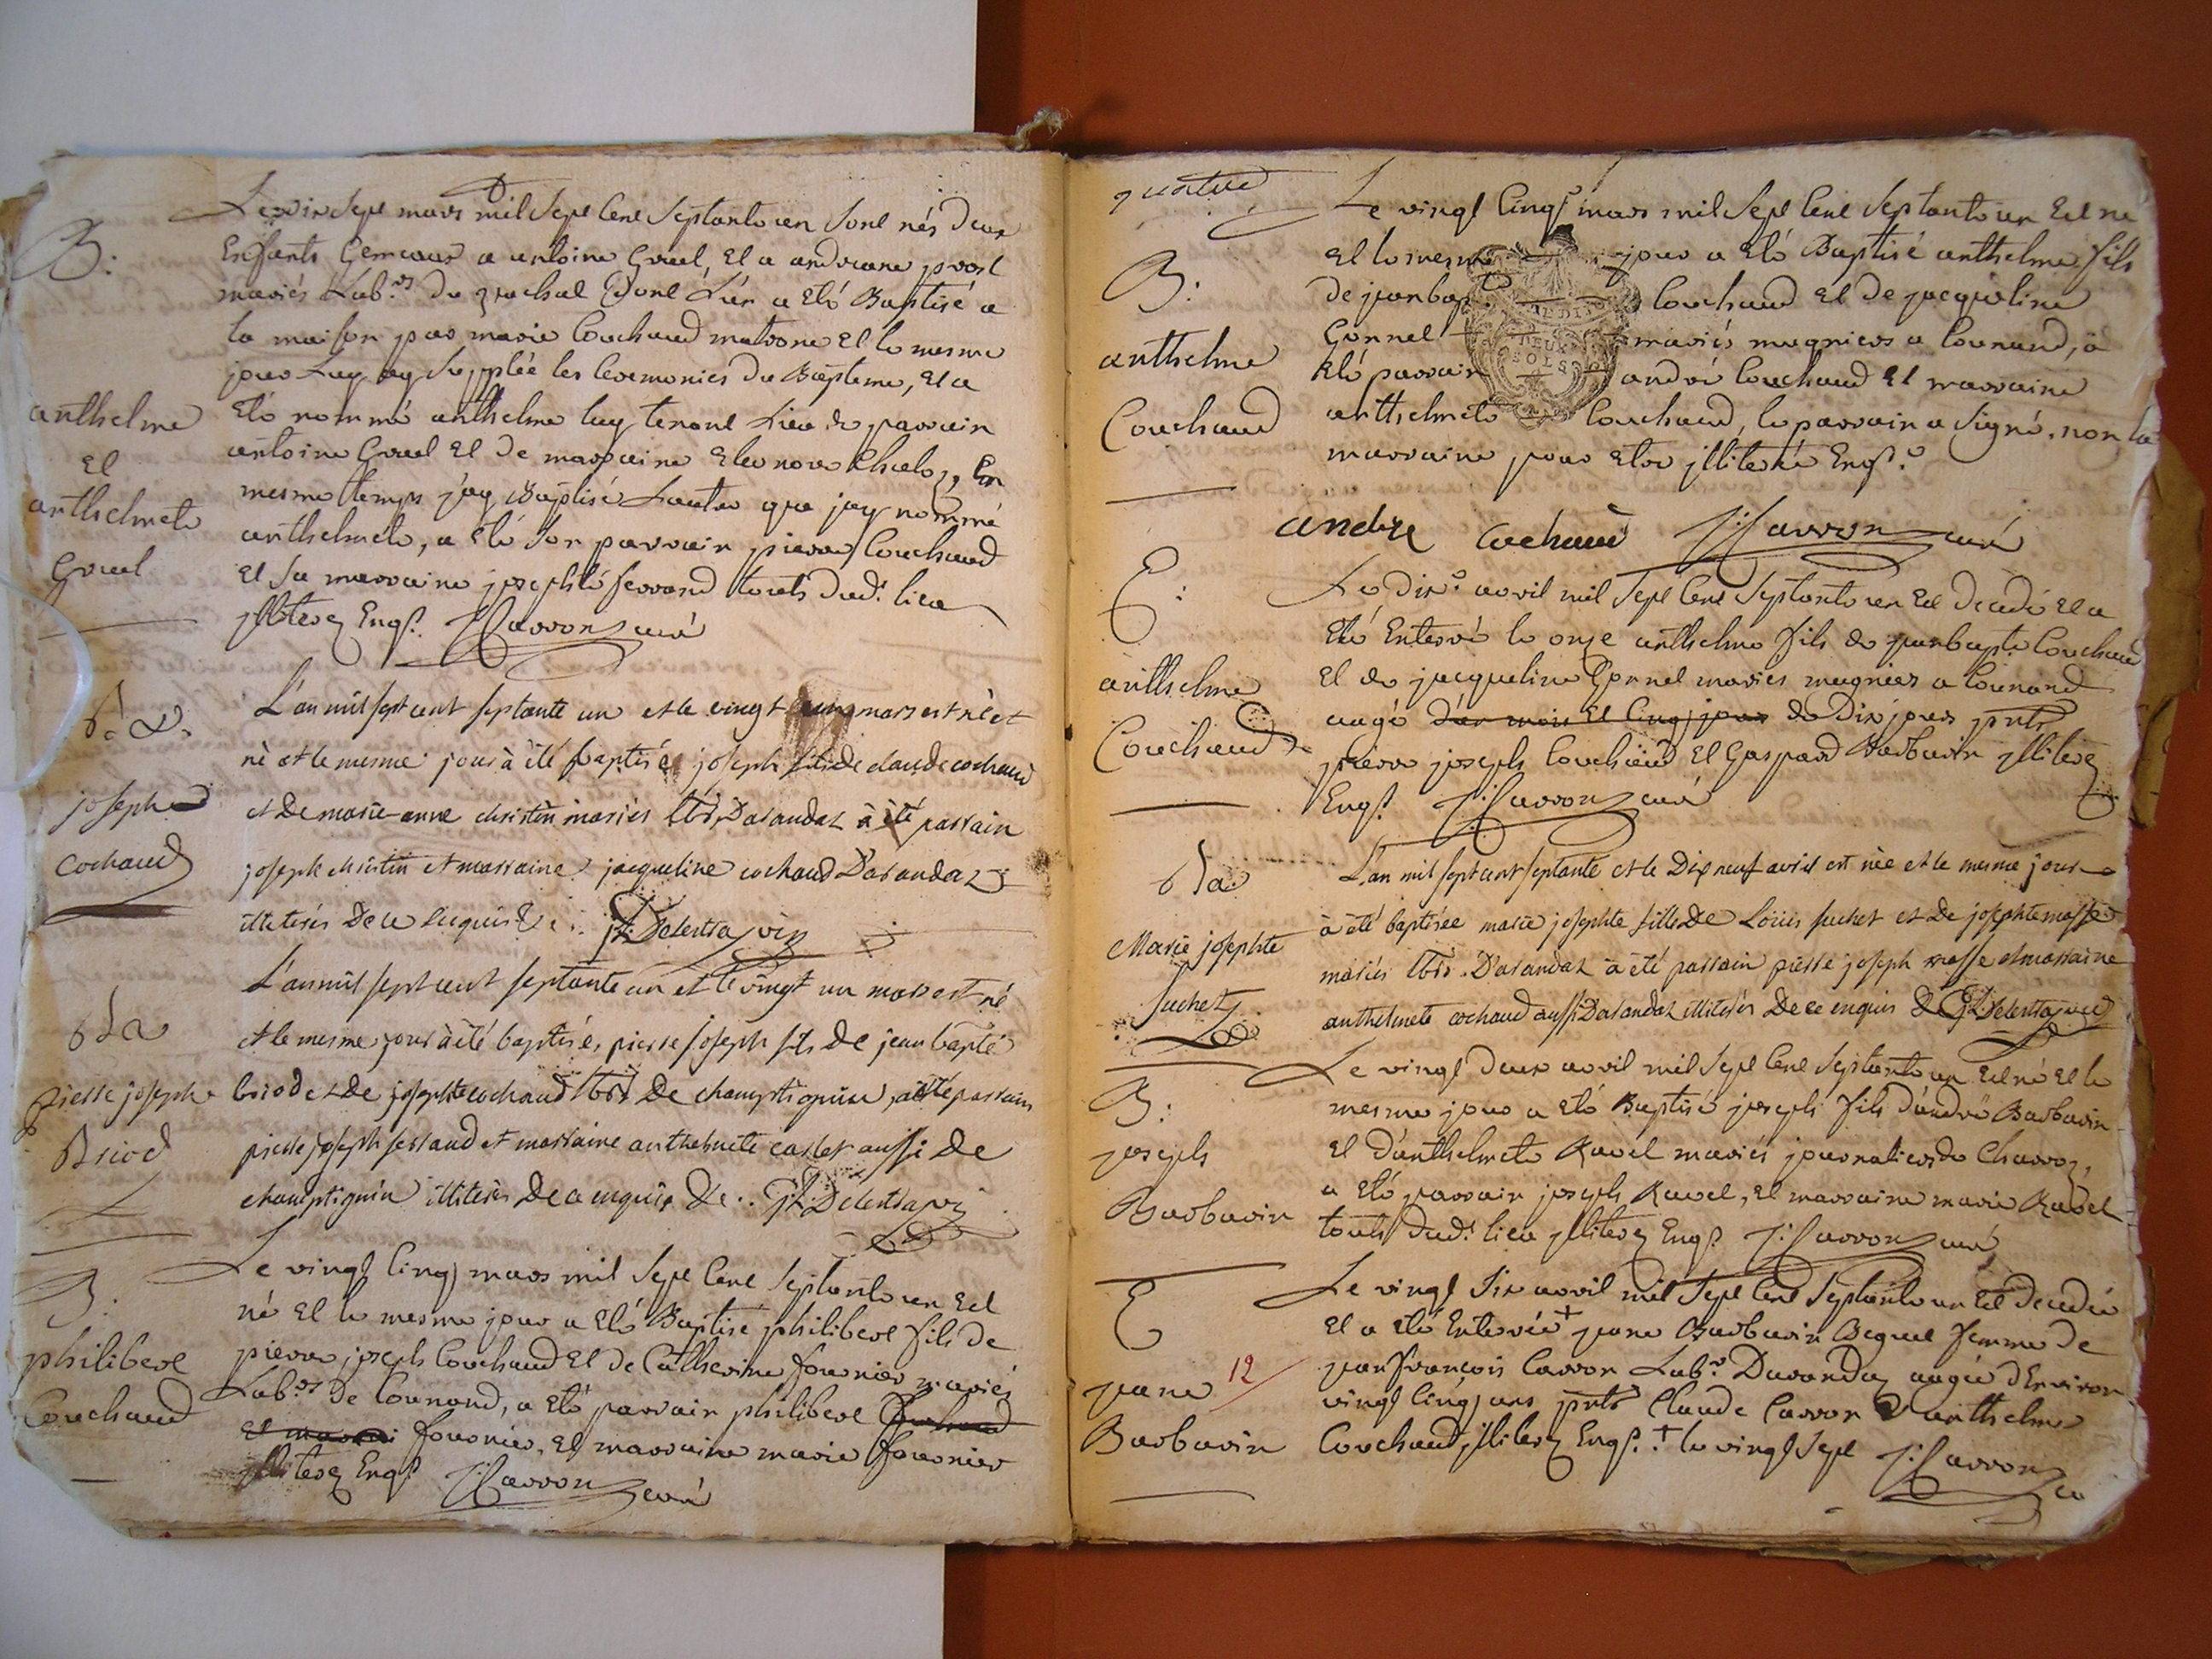 B:
Le dix Sept mars mil Sept Cent Septante un Sont nés deux
Enfants Gemeaux a antoine Gruel, Et a andreane prost
mariés Lab.rs du Dont L'un a Eté Baptisé a
la maison par marie Couchaud matrone Et le mesme
jour Luy ay Supplée les Ceremonies du Bapteme, Et a
anthelme
Eté nommé anthelme luy tenant Lieu de parrain
Et
antoine Gruel Et de marraine Eleonore En
anthelmete
mesme temps j'ay Baptisé Lautre que j'ay nommé
Gruel
anthelmete, a Eté Son parrain pierre Couchaud
Et Sa marraine josephte ferrand touts dud.t lieu
jlliterez Enqs. J: Carron curé
b. &.
L'an mil sept cent septante un et le vingt mars est né et
né et le mesme jour à été baptisé joseph fils de claude cochaud
joseph
cochaud
et De marie-anne christin mariés lbrs. D'arandaz à été parrain
joseph christin et marraine jacqueline cochaud D'arandaz
illiterés De ce enquis
L'an mil sept cent septante un et le vingt un mars est né
et le mesme jour à été baptisé, pierre joseph fils de jean bapte
pierre joseph
Briod
briod et De josephte cochaud lbrs De champtignin, a été parrain
pierre joseph ferrand et marraine anthelmete carlet aussi De
champtignin illiterés De ce enquis
B:
Le vingt Cinq mars mil Sept Cent Septante un Est
né Et le mesme jour a Eté Baptisé philibert fils de
philibert
Couchaud
pierre joseph Couchaud Et de Catherine fournier mariés
Lab.rs de Counand, a Eté parrain philibert Couchaud
Et fournier, Et marraine marie fournier
jlliterez Enqs J: Carron curé
Le vingt Cinq mars mil Sept Cent Septante un Est né
Et le mesme jour a Eté Baptisé anthelme fils
B:
de jean bapt. Couchaud Et de jacqueline
anthelme
Couchaud
Gonnel mariés magniers a Counand, a
Eté parrain andré Couchaud Et marraine
DEUX
SOLS
anthelmete Couchaud, le parrain a Signé, non la
marraine pour Etre jlliterée Enqs.
andre cochaud J: Carron curé
E:
Le Dix avril mil Sept Cent Septante un Est decedé Et a
Eté Enterré le onze anthelme fils de jean bapte Couchaud
anthelme
Couchaud
Et de jacqueline Gonnel mariés magniers a Counand
aagé d'un mois Et Cinq jours de Dix jours pnts
pierre joseph Couchaud Et Gaspard Barbarin jlliterez
Enqs. J: Carron curé
L'an mil sept cent septante et le Dix neuf avril est née et le mesme jour
à été baptisée marie josephte fille De Louis suchet et De josephte masse
Marie josephte
Suchet
mariés lbrs. D'arandaz à été parrain pierre joseph masse et marraine
anthelmete cochaud aussi D'arandaz illiterés De ce enquis
B:
Le vingt Deux avril mil Sept Cent Septante un Est né Et le
mesme jour a Eté Baptisé joseph fils d'andré Barbarin
joseph
Barbarin
Et d'anthelmete Ravel mariés journaliers de Charroz,
a Eté parrain joseph Ravel, Et marraine marie Ravel
touts dud.t lieu jlliterez Enqs. J: Carron curé
E
Le vingt Six avril mil Sept Cent Septante un Est decedée
Et a Eté Enterrée + jeane Barbarin Beguet femme de
jeane 12
Barbarin
jean françois Carron Lab.r Darandaz aagée d'Environ
vingt Cinq ans pnts Claude Carron & anthelme
Couchaud, jlliterez Enqs. + le vingt Sept J: Carron